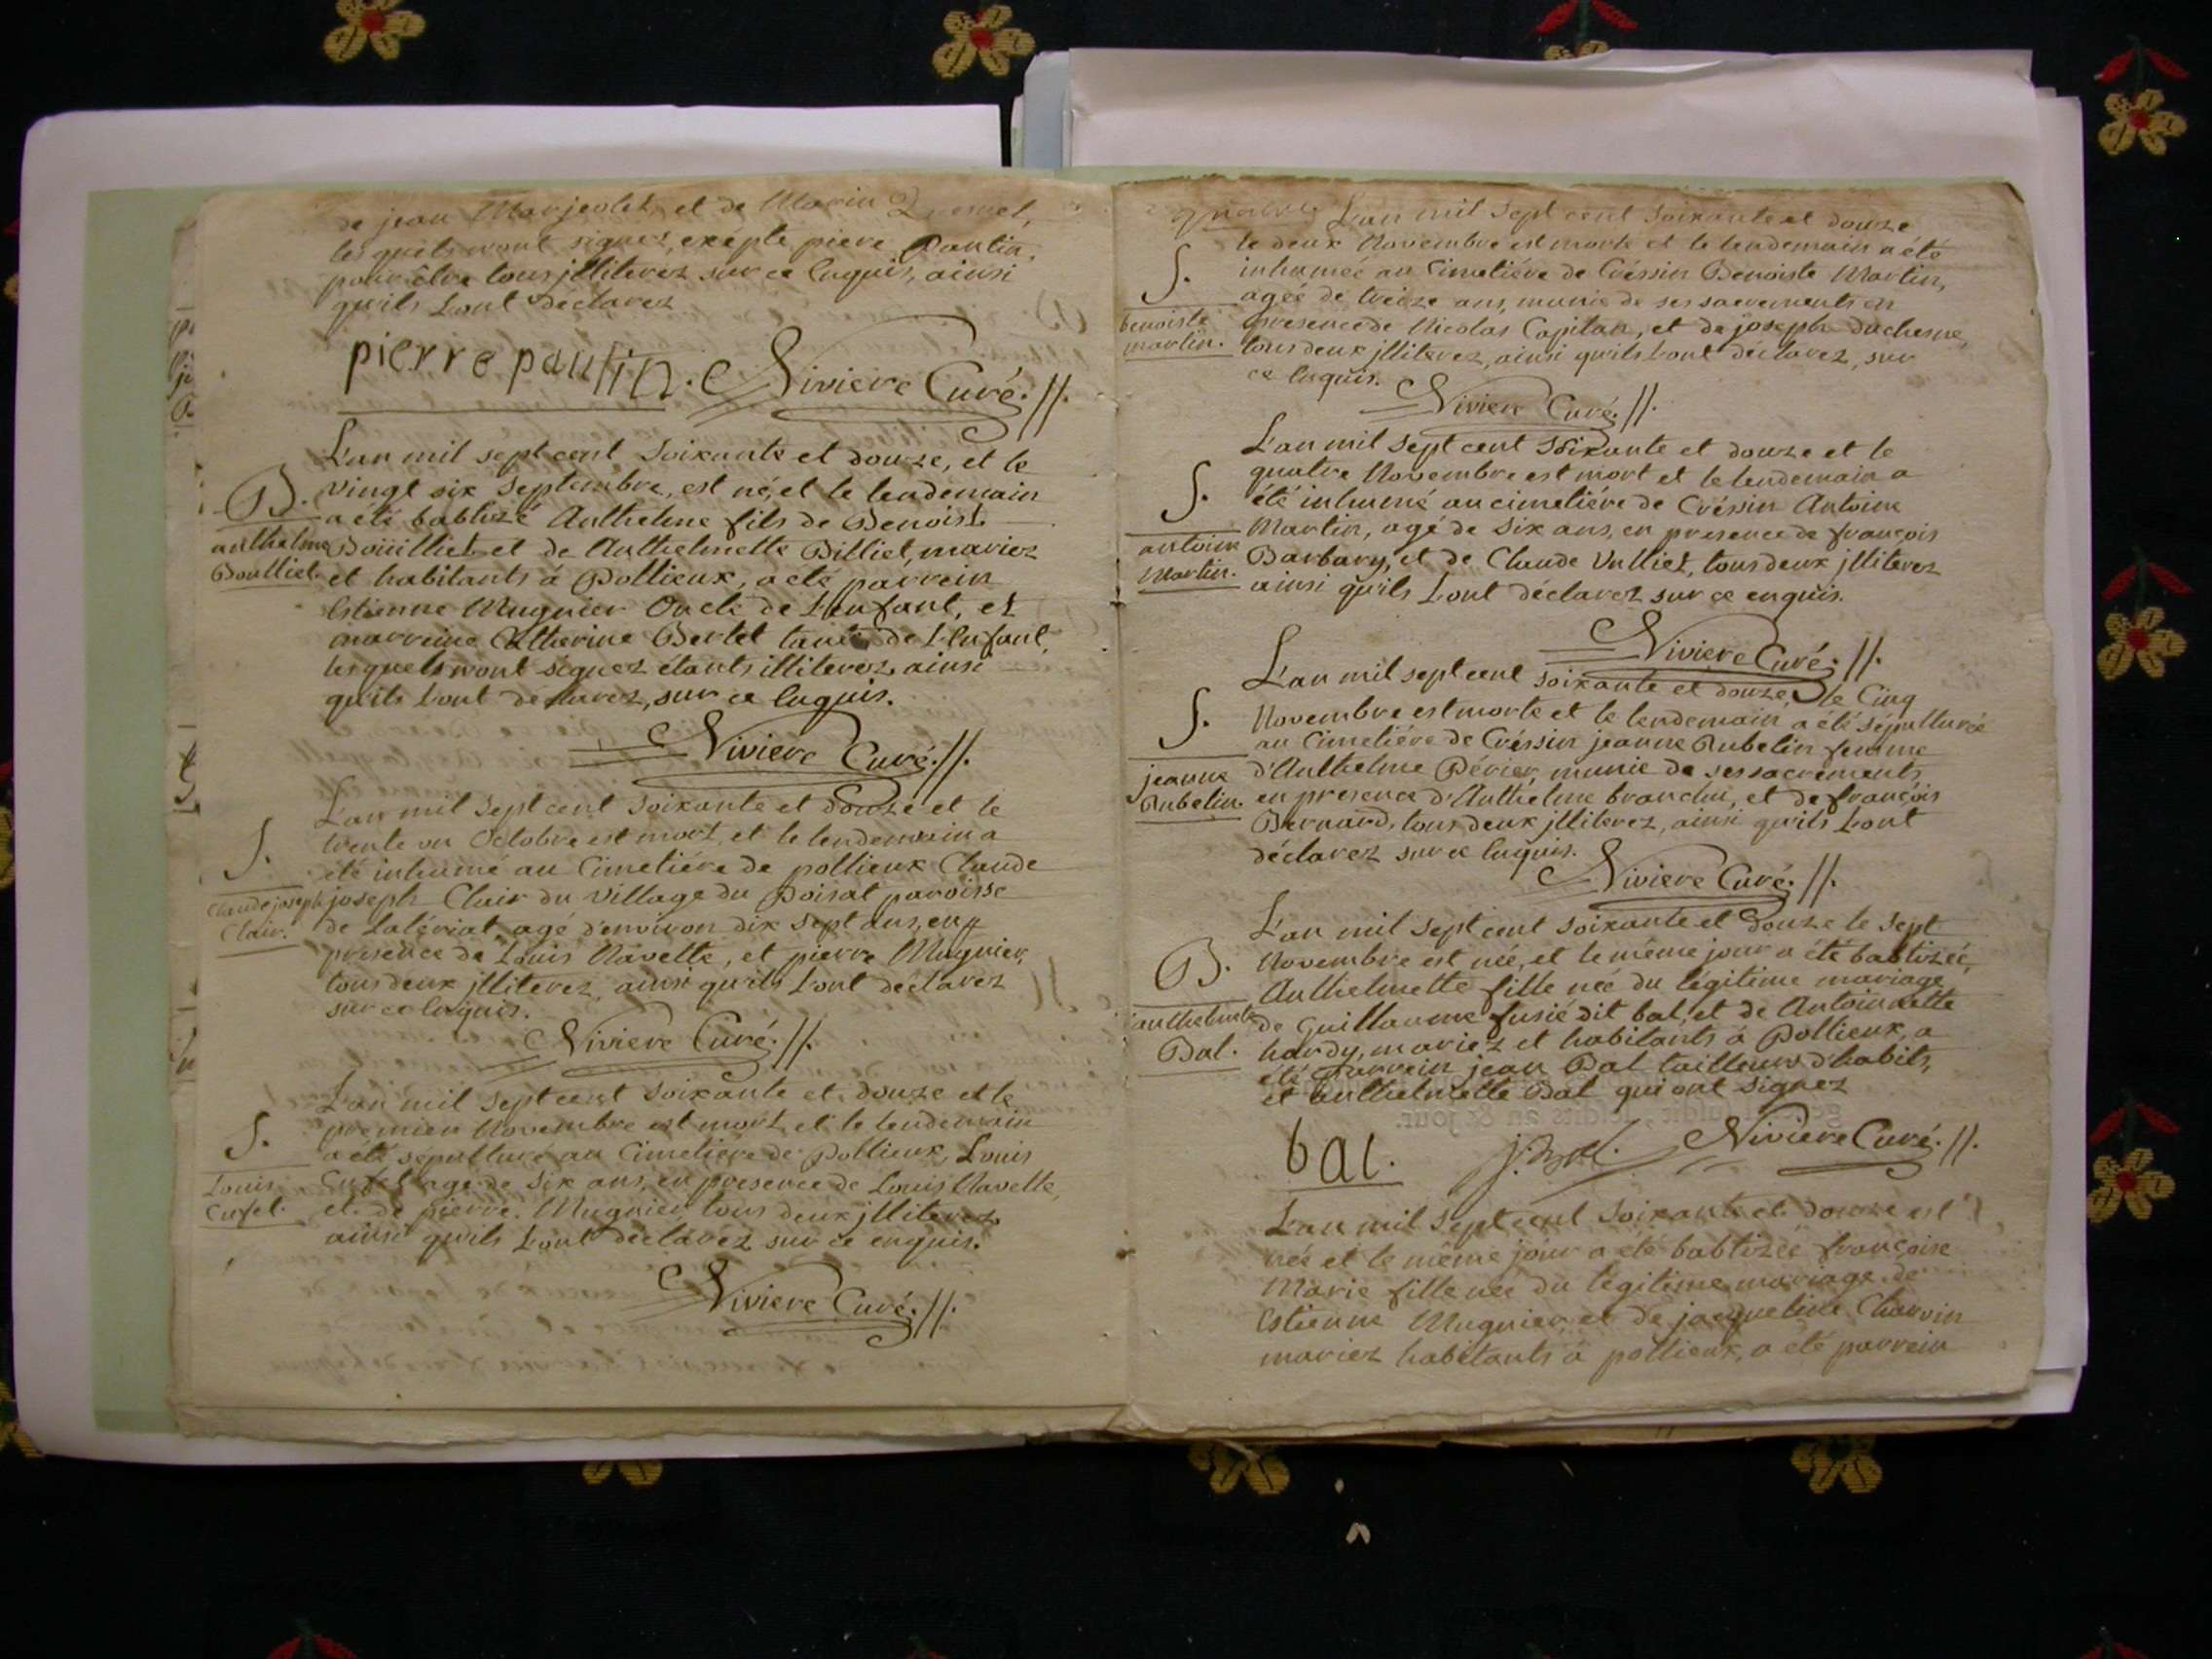 de jean Marjeolet, et de Marin
les quels n'ont signez, exépté piere Pantin,
pour être tous jlliterez sur ce Enquis, ainsi
qu'ils L'ont déclarez
pierre paulin. Niviere Curé.//.
L'an mil sept cent soixante et douze, et le
B. vingt six Septembre, est né, et le lendemain
a été babtizé Anthelme fils de Benoist
anthelme Boüilliet et de Anthelmette Billiet, mariez
Boulliet. et habitants à Pollieux, a été parrein
Estienne Mugnier Oncle de L'enfant, et
marreine Catherine Bertet tante de L'Enfant,
lesquels n'ont signez étants illiterez, ainsi
qu'ils L'ont déclarez, sur ce Enquis.
Niviere Curé.//.
L'an mil sept cent soixante et douze et le
trente un Octobre est mort, et le lendemain a
S. été inhumé au Cimetiére de pollieux Claude
Claude joseph joseph Clair du village du Poisat paroisse
Clair. de Lalériat agé d'environ dix sept ans, en
presence de Louis Navette, et pierre Mugnier,
tous deux jlliterez, ainsi qu'ils L'ont déclarez
sur ce Enquis.
Niviere Curé.//.
L'an mil sept cent soixante et douze et le
premier Novembre est mort, et le lendemain
S. a été sepulturé au Cimetiére de Pollieux, Louis
Louis agé de six ans, en presence de Louis Navette,
et de pierre Mugnier, tous deux jlliterez
ainsi qu'ils L'ont déclarez sur ce enquis.
Niviere Curé.//.
L'an mil sept cent soixante et douze
le deux Novembre est morte et le lendemain a été
S. inhumée au Cimetiére de Créssin Benoiste Martin,
agée de treize ans, munie de ses sacrements en
benoiste presence de Nicolas Capitan, et de joseph duchesne,
martin. tous deux jlliterez, ainsi qu'ils L'ont déclarez, sur
ce Enquis.
Niviere Curé.//.
L'an mil sept cent soixante et douze et le
quatre Novembre est mort et le lendemain a
S. été inhumé au cimetiére de Créssin Antoine
antoine Martin, agé de six ans, en presence de françois
Martin. Barbary, et de Claude Vulliet, tous deux jlliterez
ainsi qu'ils L'ont déclarez sur ce enquis.
Niviere Curé.//.
L'an mil sept cent soixante et douze, le Cinq
S. Novembre est morte et le lendemain a été sépulturée
au Cimetiére de Créssin jeanne Rubelin femme
jeanne d'Anthelme Périer, munie de ses sacrements,
Rubelin. en presence d'Anthelme branchu, et de françois
Bernard, tous deux jlliterez, ainsi qu'ils L'ont
déclarez sur ce Enquis.
Niviere Curé.//.
L'an mil sept cent soixante et douze le sept
B. Novembre est née, et le même jour a été babtizée,
Anthelmette fille née du légitime mariage
anthelmette de Guillaume fusié dit bal, et de Antoinette
Bal. hardy, mariez et habitants à Pollieux, a
été parrein jean Bal tailleurs d'habits,
et Anthelmette Bal qui ont signez
bal. J. Bal. Niviere Curé.//.
L'an mil sept cent soixante et douze est
née et le même jour a été babtizée françoise
Marie fille née du légitime mariage de
Estienne Mugnier et de jacqueline Charvin
mariez habitants à pollieux, a été parrein